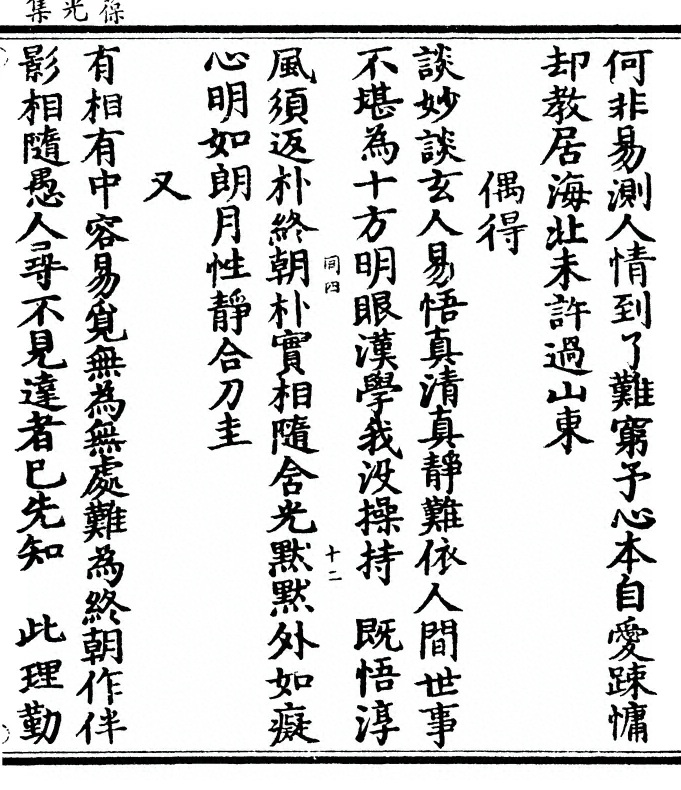 葆光集
何非易測人情到了難窮予心本自愛踈慵
却教居海北未許過山東
偶得
談妙談玄人易悟真清真靜難依人間世事
不堪為十方明眼漢學我没操持　既悟淳
同四
十二
風須返朴終朝朴實相隨含光默默外如癡
心明如朗月性靜合刀圭
又
有相有中容易覓無為無處難為終朝作伴
影相隨愚人尋不見達者已先知　此理勤